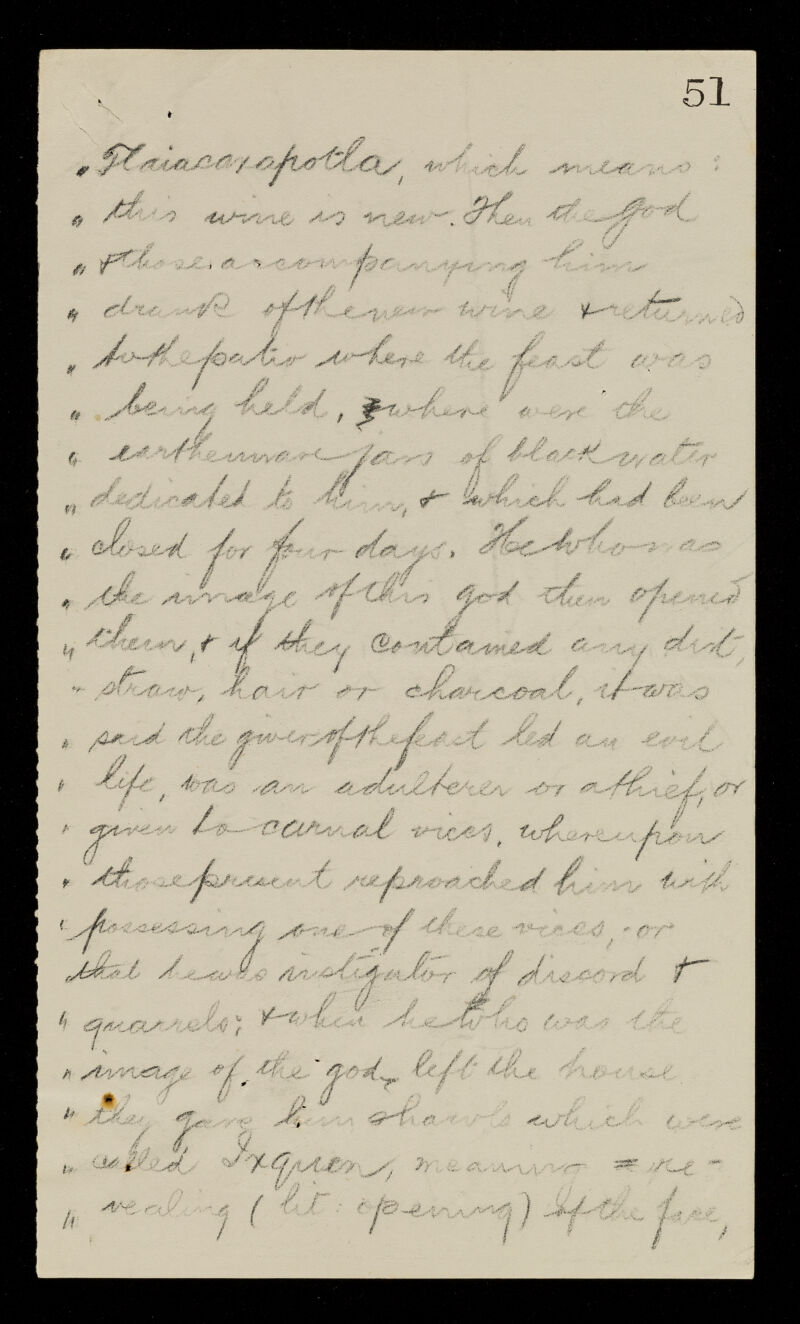 51
" Tlaiacaxapotla, which means:
" this wine is new. Then the god
" & those accompanying him
" drank of the new wine & returned
" to the patio where the feast was
" being held, where were the
" earthenware jars of black water
" dedicated to him, & which had been
" closed for four days. He who was
" the image of this god then opened
" them, & if they contained any dirt,
" straw, hair or charcoal, it was
" said the giver of the feast led an evil
" life, was an adulterer or a thief, or
" given to carnal vices, whereupon
" those present reproached him with
" possessing one of these vices, or
that he was instigator of discord &
" quarrels; & when he who was the
" image of the god, left the house
" they gave him shawls which were
" called Ixquen, meaning = re-
" vealing (lit: opening) of the face,